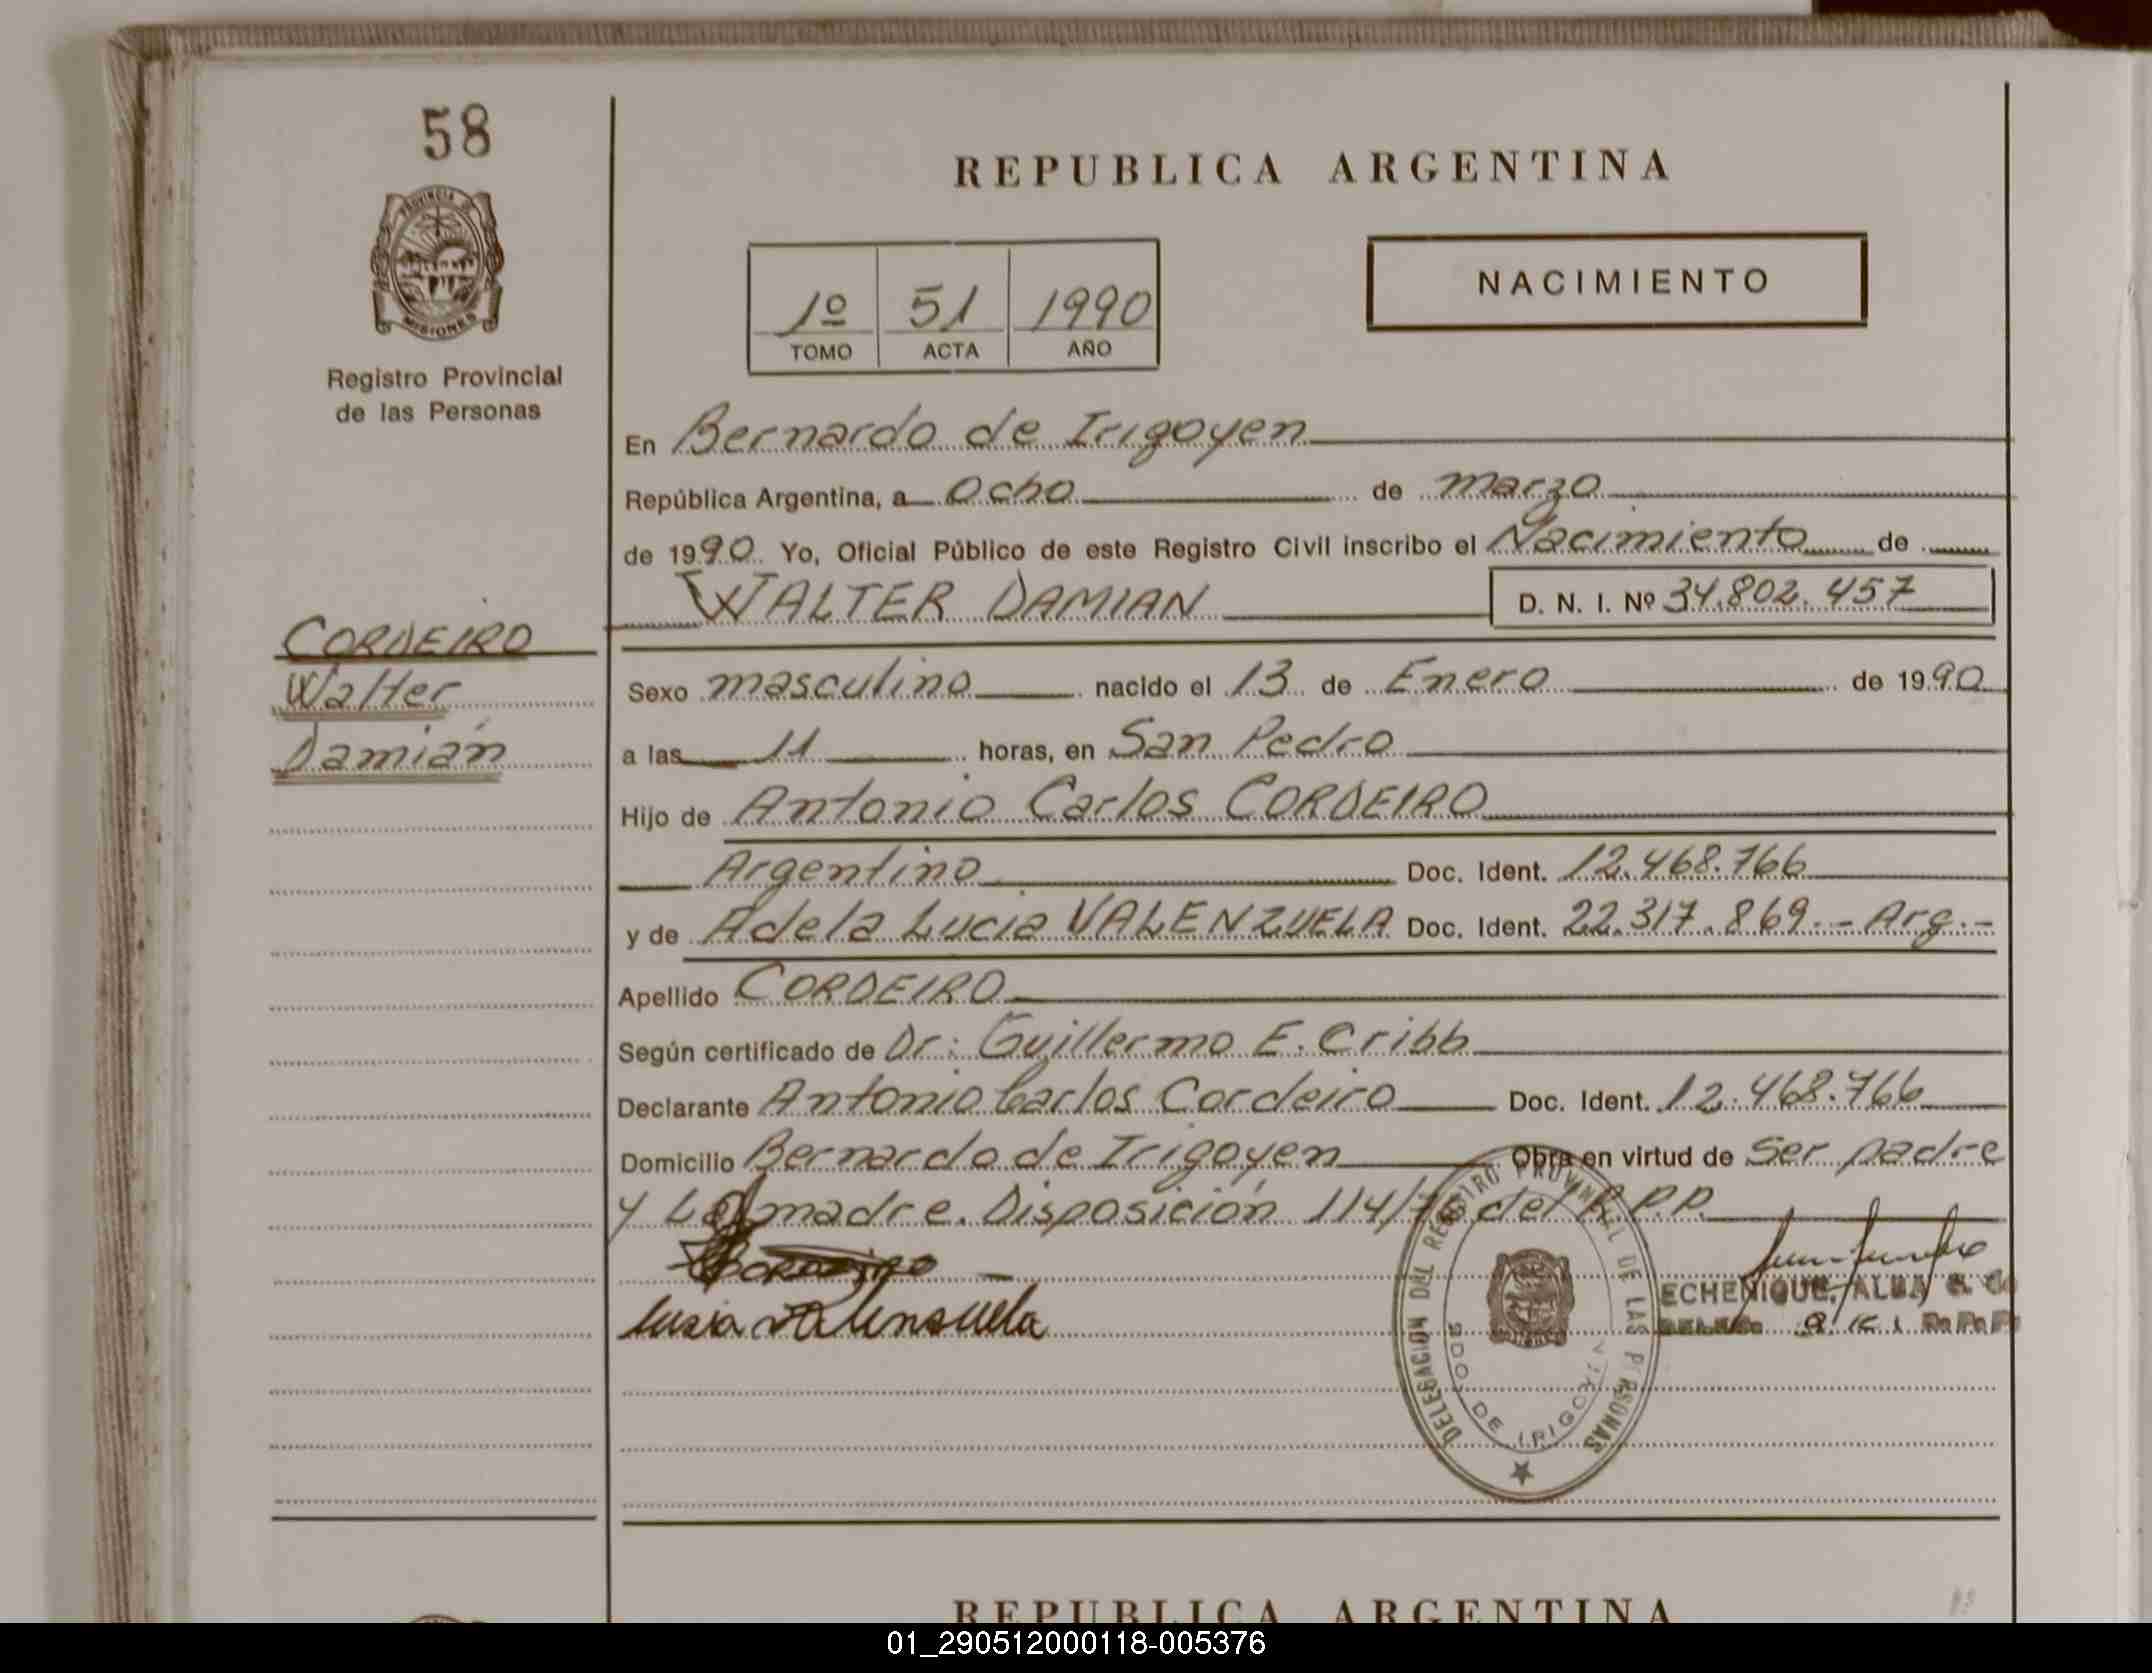 58
PROVINCIA DE
MISIONES
Registro Provincial
de las Personas
REPUBLICA ARGENTINA
NACIMIENTO
1º 51 1990
TOMO ACTA AÑO
En Bernardo de Irigoyen
República Argentina, a ocho de marzo
de 1990 Yo, Oficial Público de este Registro Civil inscribo el Nacimiento de
WALTER DAMIAN D. N. I. Nº 34.802.457
CORDEIRO
Walter
Damián
Sexo masculino nacido el 13 de Enero de 1990
a las 11 horas, en San Pedro
Hijo de Antonio Carlos CORDEIRO
Argentino Doc. Ident. 12.468.766
y de Adela Lucia VALENZUELA Doc. Ident. 22.317.869.- Arg.-
Apellido CORDEIRO
Según certificado de Dr: Guillermo E. Cribb
Declarante Antonio Carlos Cordeiro Doc. Ident. 12.468.766
Domicilio Bernardo de Irigoyen Obra en virtud de ser padre
y La madre. Disposición 114/76 del R.P.P.
lusia valensuela
DELEGACION DEL REGISTRO PROVINCIAL DE LAS PERSONAS
BDO. DE IRIGOYEN
ECHENIQUE, ALBA
REPUBLICA ARGENTINA
01_290512000118-005376